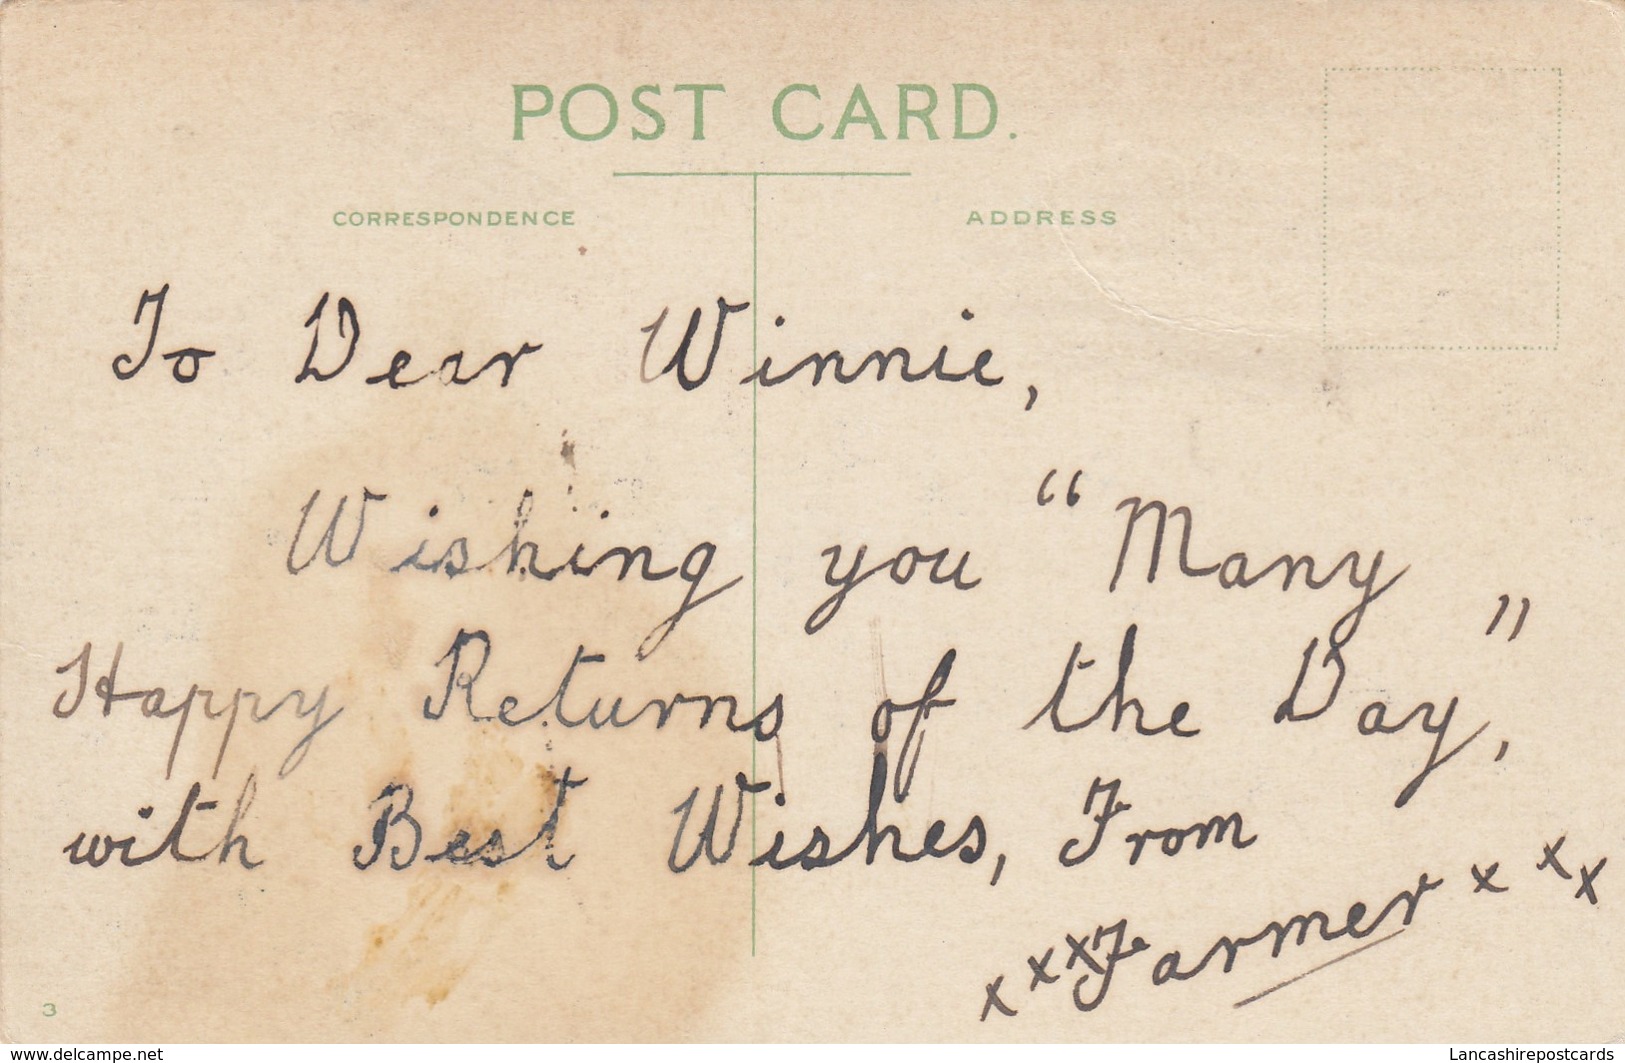 POST CARD.
CORRESPONDENCE ADDRESS
To Dear Winnie,
Wishing you “Many
Happy Returns of the Day,”
with Best Wishes, From
x x x Farmer x x x
3
www.delcampe.net Lancashirepostcards